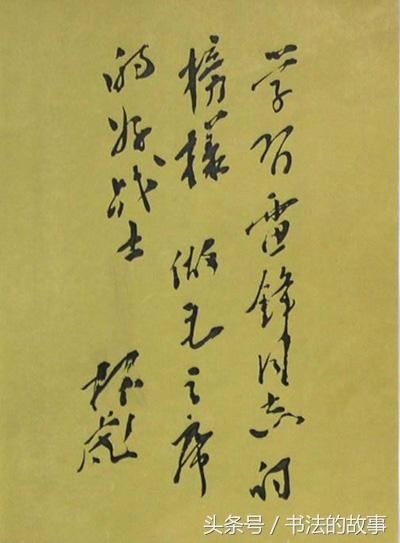 学习雷鋒同志的
榜樣 做毛主席
的好战士
林彪
头条号 / 书法的故事